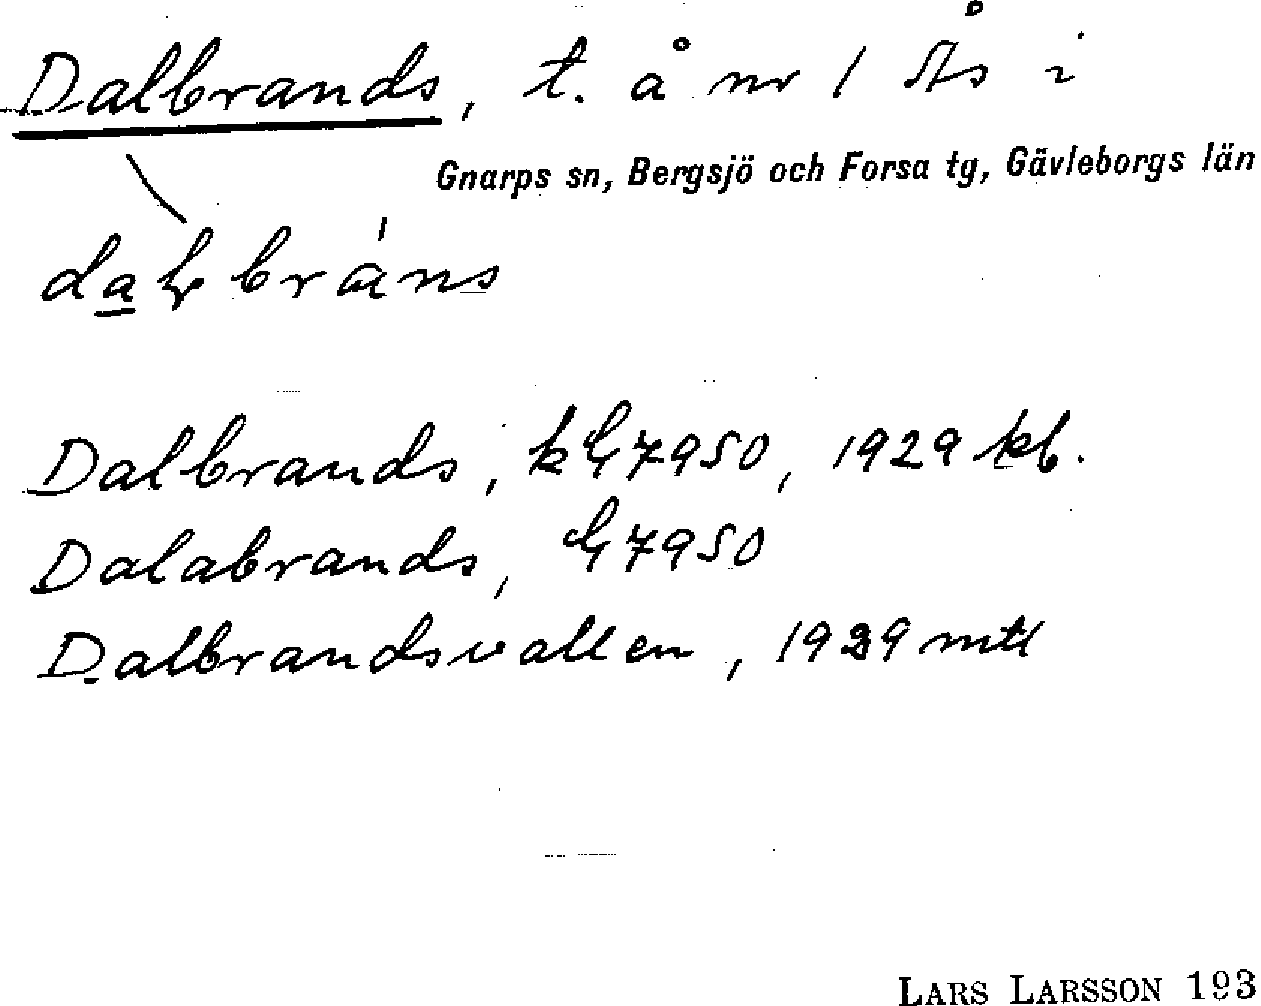 Dalbrands, t. å nr 1 Ås i
Gnarps sn, Bergsjö och Forsa tg, Gävleborgs län
Dalbrands, 1929 kb.
Dalabrands, G 7950
Dalbrandsvallen, 1929 mtl
LARS LARSSON 193